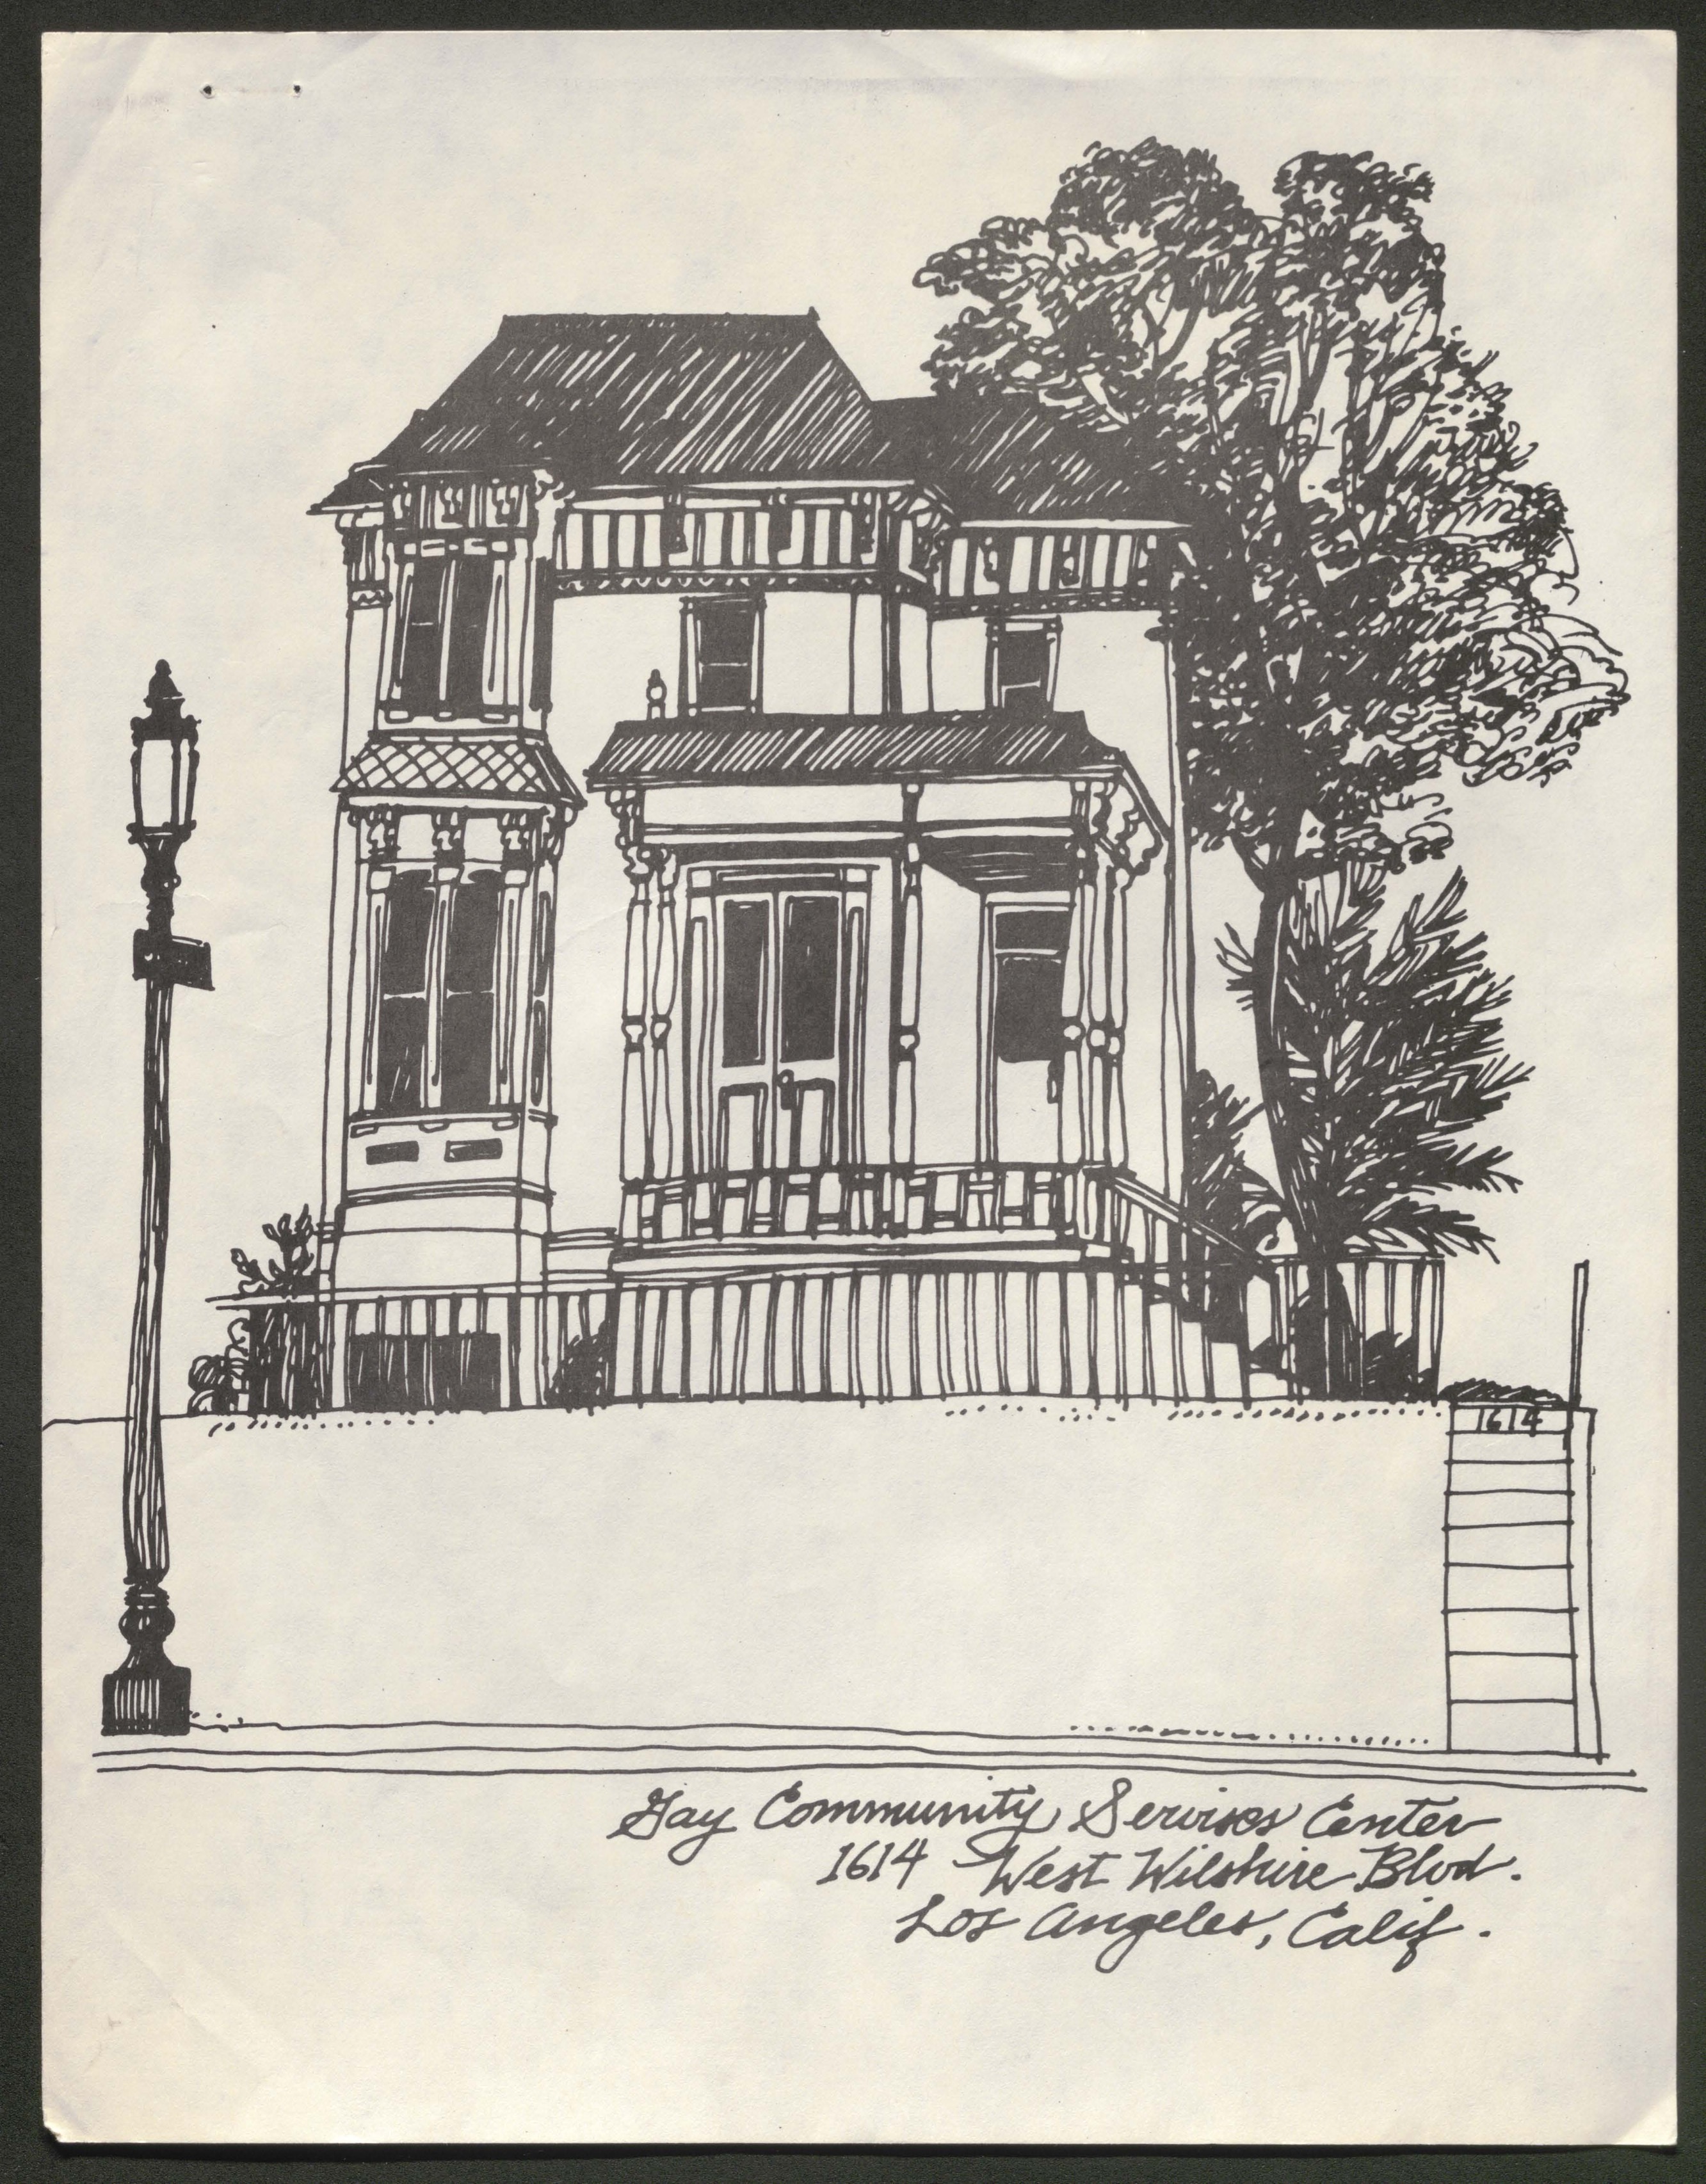 1614
Gay Community Services Center
1614 West Wilshire Blvd.
Los Angeles, Calif.